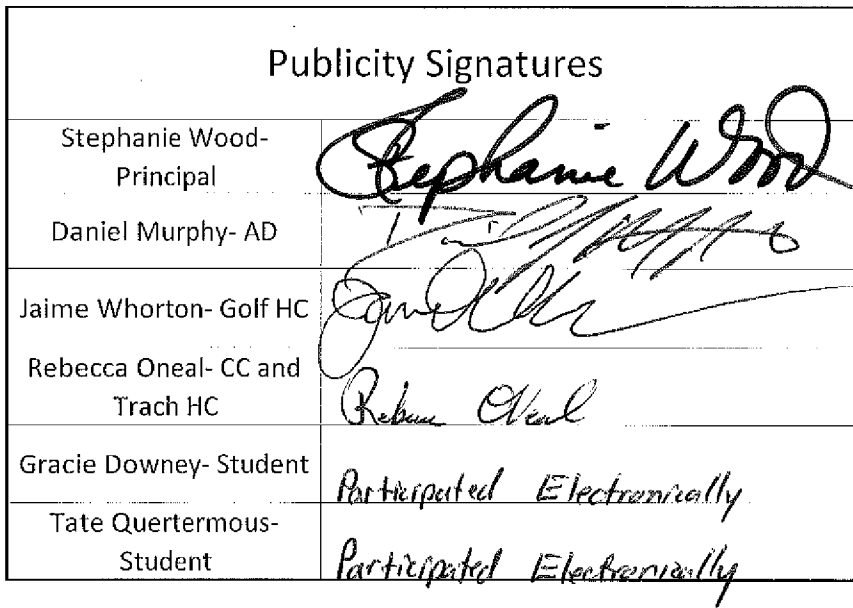 Publicity Signatures
Stephanie Wood-
Principal
Stephanie Wood
Daniel Murphy- AD
Jaime Whorton- Golf HC
Rebecca Oneal- CC and
Trach HC
Rebecca ONeal
Gracie Downey- Student
Participated Electronically
Tate Quertermous-
Student
Participated Electronically